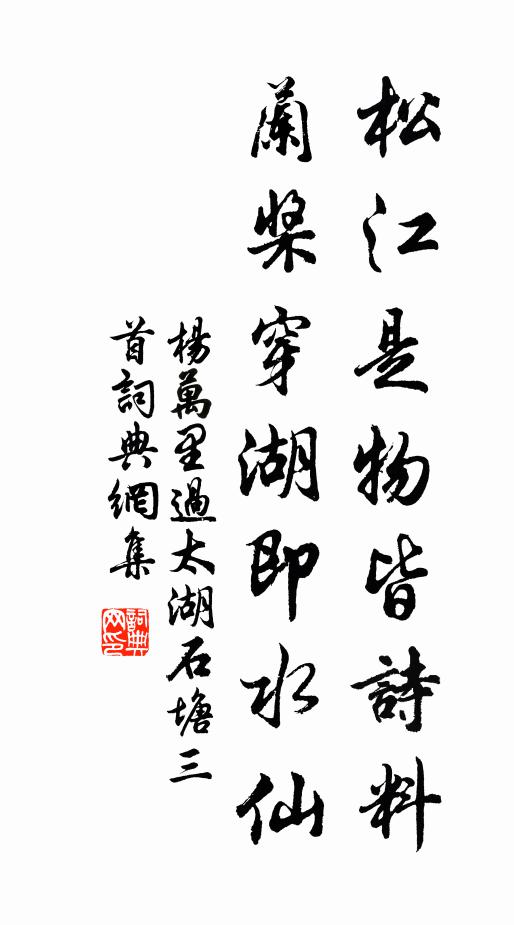 松江是物皆詩料
蘭槳穿湖即水仙
楊萬里過太湖石塘三
首詞典網集
詞典
网印